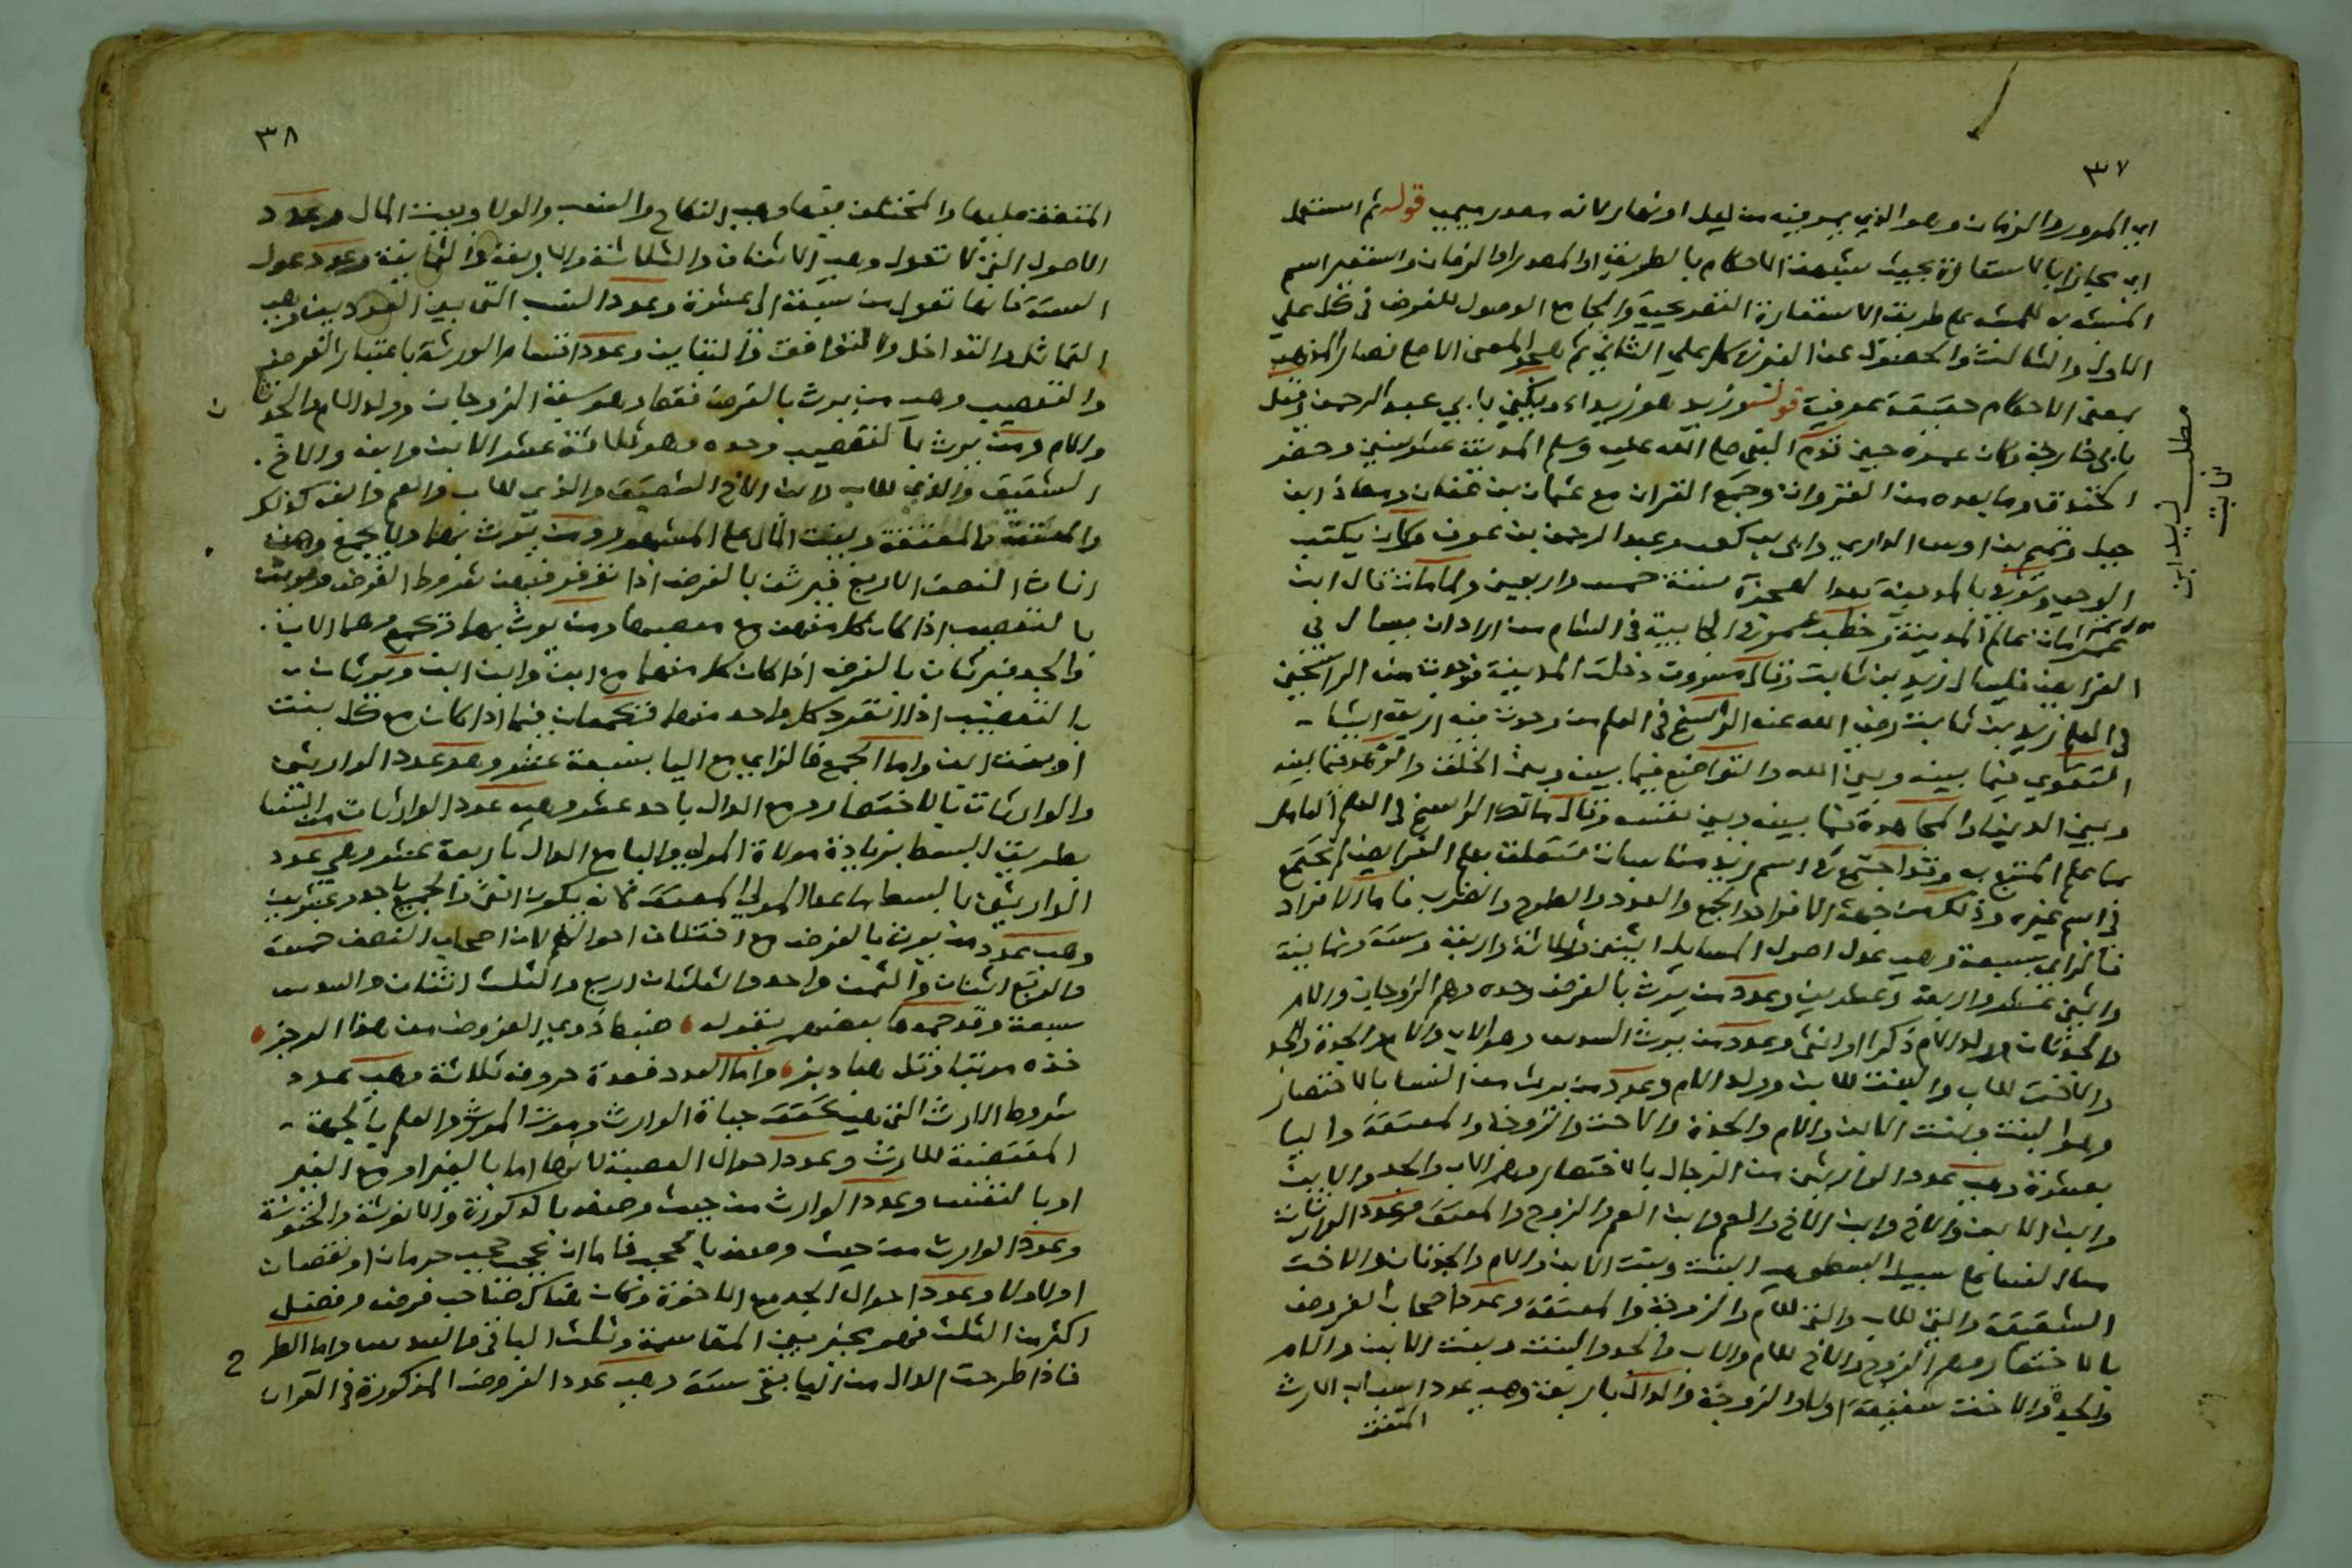 ٣٧
اي المرور والزمان وهو الذي يمر فيه من ليل او نهار لانه مصدر ميمي قوله ثم استعمل
اي مجازا بالاستعارة بحيث شبهت الاحكام بالطريق او المصدر او الزمان واستعير اسم
المشبه به للمشبه على طريق الاستعارة التصريحية والجامع الوصول للغرض في كل على
الاول والثالث والحصول عن الغرض كل على الثاني ثم هجر المعنى الاصلي فصار المذهب
بمعنى الاحكام حقيقة عرفية قوله زيد هو زيد ويكنى بابي عبد الرحمن وقيل
بابي خارجة وكان عمره حين قدم النبي صلى الله عليه وسلم المدينة عشر سنين وحضر
الخندق وما بعده من الغزوات وجمع القران مع عثمان بن عفان ومعاذ ابن
جبل وتميم بن اوس الداري وابي بن كعب وعبد الرحمن بن عوف وكان يكتب
الوحي وتوفي بالمدينة سنة خمس واربعين ولما مات قال ابن
عمر مات عالم المدينة وخطب عمر في الجابية في الشام من اراد ان يسال في
الفرايض فليسال زيد بن ثابت وقال مسروق دخلت المدينة فوجدت من الراسخين
في العلم زيد بن ثابت رضي الله عنه الراسخ في العلم من وجدت فيه اربعة اشيا
التقوى فيما بينه وبين الله والتواضع فيما بينه وبين الخلق والزهد فيما بينه
وبين الدنيا والمجاهدة فيما بينه وبين نفسه وقال مالك الراسخ في العلم العامل
بما علم المتبع به وقد اجتمع في اسم زيد مناسبات متعلقة بعلم الفرايض لم تجتمع
في اسم غيره وذلك من جهة الافراد والجمع والعدد والطرح والضرب فاما الافراد
فالزاي بسبعة وهي عدد اصول المسايل اثنين وثلاثة واربعة وستة وثمانية
واثني عشر واربعة وعشرين وعدد من يرث بالفرض وحده وهم الزوجان والام
والجدتان وولد الام ذكرا او انثى وعدد من يرث السدس وهو الاب والام والجدة والجد
والاخت للاب والبنت للابن وولد الام وعدد من يرث من النسا بالاختصار
وهو البنت وبنت الابن والام والجدة والاخت والزوجة والمعتقة واليا
بعشرة وهي عدد الوارثين من الرجال بالاختصار وهم الاب والجد والابن
وابن الابن والاخ وابن الاخ والعم وابن العم والزوج والمعتق وعدد الوارثات
من النسا على سبيل البسط وهي البنت وبنت الابن والام والجدتان والاخت
الشقيقة والتي للاب والتي للام والزوجة والمعتقة وعدد اصحاب الفروض
بالاختصار وهم الزوج والاخ للام والاب والجد والبنت وبنت الابن والام
والجدة والاخت شقيقة اولا والزوجة والدال باربعة وهي عدد اسباب الارث
المتفق
مطلب زيد ابن
ثابت
٣٨
المتفق عليها والمختلف فيها وهي النكاح والنسب والولا وبيت المال وعدد
الاصول التي لا تعول وهي الاثنان والثلاثة والاربعة والثمانية وعدد عول
الستة فانها تعول من سبعة الى عشرة وعدد النسب التي بين العددين وهي
التماثل والتداخل والتوافق والتباين وعدد اقسام الورثة باعتبار الفرض
والتعصيب وهي من يرث بالفرض فقط وهو سبعة الزوجان وولد الام والجدتان
والام ومن يرث بالتعصيب وحده وهو ثلاثة عشر الابن وابنه والاخ
الشقيق والذي للاب وابن الاخ الشقيق والذي للاب والعم وابنه كذلك
والمعتق والمعتقة وبيت المال على المشهور ومن يرث بهما ولا يجمع وهن
اناث النصف الاربع فيرثن بالفرض اذا شروط الفرض ويرثن
بالتعصيب اذا كان كل منهن مع معصبها ومن يرث بهما وقد يجمع وهما الاب
والجد فيرثان بالفرض اذا كان كل منهما مع ابن وابن ابن ويرثان
بالتعصيب اذا انفرد كل واحد منهما ويجمعان بينهما اذا كان مع كل بنت
او بنت ابن واما الجمع فالزاي مع اليا بسبعة عشر وهو عدد الوارثين
والوارثات بالاختصار ومع الدال باحد عشر وهي عدد الوارثات من النسا
بطريق البسط بزيادة مولاة المولى واليا مع الدال باربعة عشر وهي عدد
الوارثين بالبسط ما عدا المولى المعتق فانه يكون انثى والجميع باحد وعشرين
وهي عدد من يرث بالفرض مع اختلاف احوالهم لان اصحاب النصف خمسة
والربع اثنان والثمن واحد والثلثان اربع والثلث اثنان والسدس
سبعة وقد جمعها بعضهم بقوله ضبط ذوي الفروض من هذا الرجز
خذه مرتبا وقل هبادبز واما العدد فعدة حروفه ثلاثة وهي عدد
شروط الارث التي هي تحقق حياة الوارث وموت المورث والعلم بالجهة
المقتضية للارث وعدد احوال العصبة لانها اما بالغير او مع الغير
او بالنفس وعدد الوارث من حيث وصفه بالذكورة والانوثة والخنوثة
وعدد الوارث من حيث وصفه بالحجب فاما ان يحجب حجب حرمان او نقصان
او لا ولا وعدد احوال الجد مع الاخوة وكان هناك صاحب فرض وفضل
اكثر من الثلث فهو يخير بين المقاسمة وثلث الباقي والسدس واما الطر
فاذا طرحت الدال من اليا بقي ستة وهي عدد الفروض المذكورة في القران